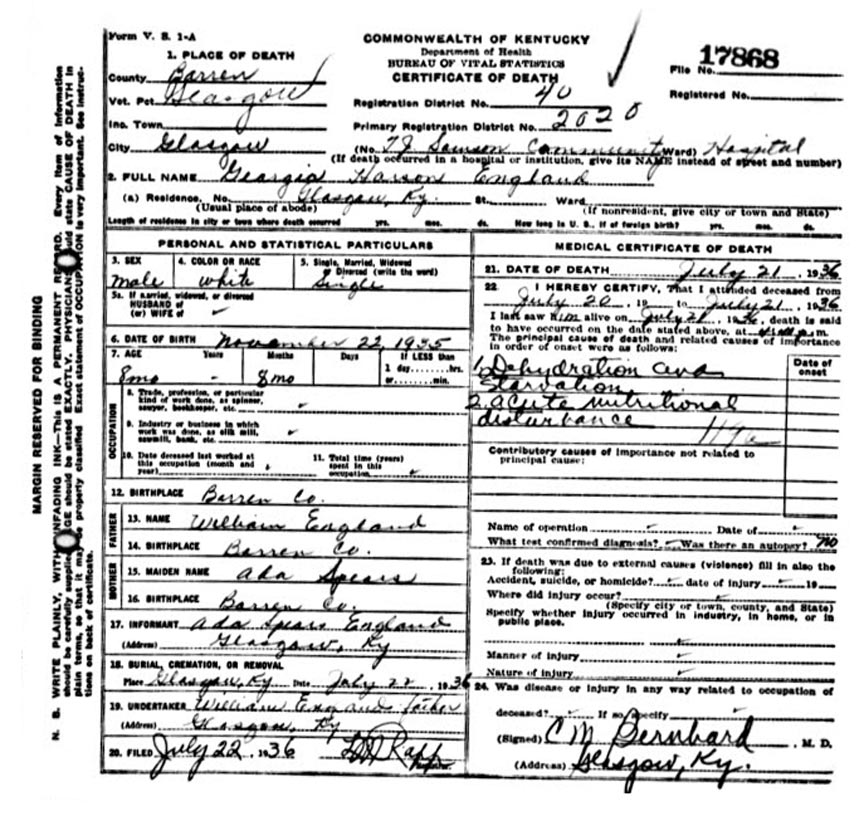 Form V. S. 1-A
COMMONWEALTH OF KENTUCKY
Department of Health
BUREAU OF VITAL STATISTICS
CERTIFICATE OF DEATH
File No. 17868
Registered No.
1. PLACE OF DEATH
County Barren
Vot. Pct. Glasgow
Inc. Town
City Glasgow
Registration District No. 40
Primary Registration District No. 2020
(No. T J Samson Community Ward) Hospital
(If death occurred in a hospital or institution, give its NAME instead of street and number)
2. FULL NAME Georgia England
(a) Residence, No. Glasgow, Ky. St. Ward
(Usual place of abode) (If nonresident, give city or town and State)
Length of residence in city or town where death occurred yrs. mos. ds. How long in U. S., if of foreign birth? yrs. mos. ds.
PERSONAL AND STATISTICAL PARTICULARS
3. SEX 4. COLOR OR RACE 5. Single, Married, Widowed
Divorced (write the word)
male white Single
5a. If married, widowed, or divorced
HUSBAND of
(or) WIFE of
6. DATE OF BIRTH November 22, 1935
7. AGE Years Months Days If LESS than
1 day, hrs.
or min.
8mo - 8mo
OCCUPATION
8. Trade, profession, or particular
kind of work done, as spinner,
sawyer, bookkeeper, etc.
9. Industry or business in which
work was done, as silk mill,
sawmill, bank, etc.
10. Date deceased last worked at
this occupation (month and
year)
11. Total time (years)
spent in this
occupation
12. BIRTHPLACE Barren Co.
FATHER
13. NAME William England
14. BIRTHPLACE Barren Co.
MOTHER
15. MAIDEN NAME Ada Spears
16. BIRTHPLACE Barren Co.
17. INFORMANT Ada Spears England
(Address) Glasgow, Ky
18. BURIAL, CREMATION, OR REMOVAL
Place Glasgow, Ky Date July 22, 1936
19. UNDERTAKER William England father
(Address) Glasgow, Ky
20. FILED July 22, 1936 Rapp
MEDICAL CERTIFICATE OF DEATH
21. DATE OF DEATH July 21, 1936
22. I HEREBY CERTIFY, That I attended deceased from
July 20, 19 to July 21, 1936
I last saw him alive on July 21, 1936, death is said
to have occurred on the date stated above, at m.
The principal cause of death and related causes of importance
in order of onset were as follows:
Date of
onset
1. Dehydration and
Starvation
2. acute nutritional
disturbance
119a
Contributory causes of importance not related to
principal cause:
Name of operation Date of
What test confirmed diagnosis? Was there an autopsy? No
23. If death was due to external causes (violence) fill in also the
following:
Accident, suicide, or homicide? date of injury 19
Where did injury occur?
(Specify city or town, county, and State)
Specify whether injury occurred in industry, in home, or in
public place.
Manner of injury
Nature of injury
24. Was disease or injury in any way related to occupation of
deceased? If so, specify
(Signed) C M Bernhard, M. D.
(Address) Glasgow, Ky.
MARGIN RESERVED FOR BINDING
N. B. WRITE PLAINLY, WITH UNFADING INK—THIS IS A PERMANENT RECORD. Every item of information
should be carefully supplied. AGE should be stated EXACTLY. PHYSICIANS should state CAUSE OF DEATH in
plain terms, so that it may be properly classified. Exact statement of OCCUPATION is very important. See instruc-
tions on back of certificate.